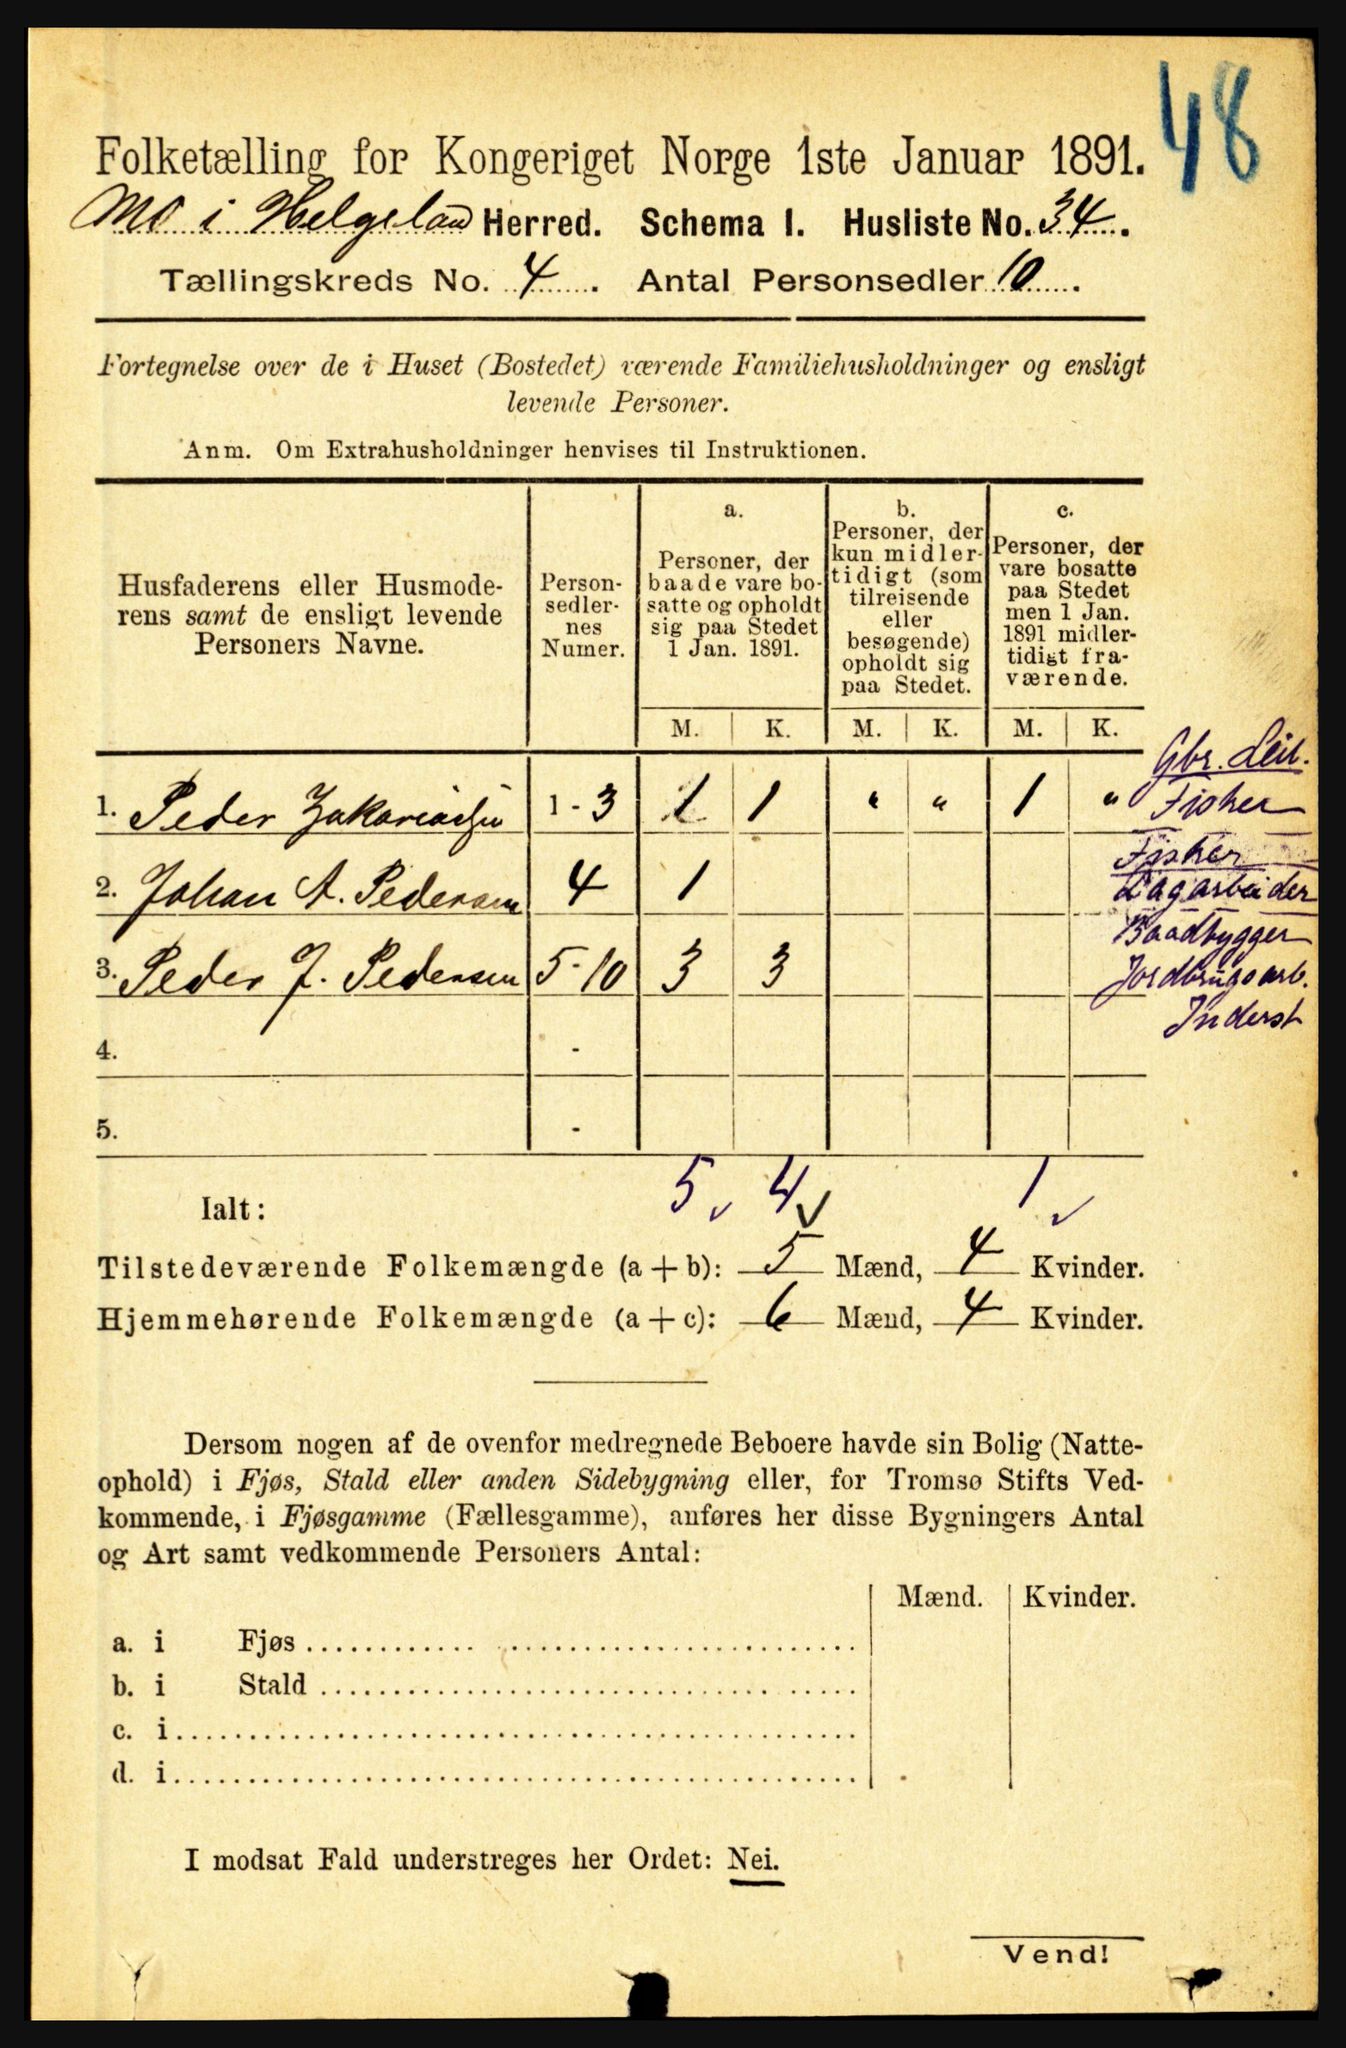 48
Folketælling for Kongeriget Norge 1ste Januar 1891.
Mo i Helgeland Herred. Schema I. Husliste No. 34.
Tællingskreds No. 4. Antal Personsedler 10.
Fortegnelse over de i Huset (Bostedet) værende Familiehusholdninger og ensligt
levende Personer.
Anm. Om Extrahusholdninger henvises til Instruktionen.
Husfaderens eller Husmode-
rens samt de ensligt levende
Personers Navne.
Person-
sedler-
nes
Numer.
a.
Personer, der
baade vare bo-
satte og opholdt
sig paa Stedet
1 Jan. 1891.
b.
Personer, der
kun midler-
tidigt (som
tilreisende
eller
besøgende)
opholdt sig
paa Stedet.
c.
Personer, der
vare bosatte
paa Stedet
men 1 Jan.
1891 midler-
tidigt fra-
værende.
M. K. M. K. M. K.
Gbr. Leil.
1. Peder Zakariassen 1 - 3 1 1 " " 1 " Fisker
Fisker
2. Johan A. Pedersen 4 1 Dagarbeider
Baadbygger
3. Peder J. Pedersen 5 - 10 3 3 Jordbrugsarb.
Inderst
4. -
5. -
Ialt: 5 4 1
Tilstedeværende Folkemængde (a + b): 5 Mænd, 4 Kvinder.
Hjemmehørende Folkemængde (a + c): 6 Mænd, 4 Kvinder.
Dersom nogen af de ovenfor medregnede Beboere havde sin Bolig (Natte-
ophold) i Fjøs, Stald eller anden Sidebygning eller, for Tromsø Stifts Ved-
kommende, i Fjøsgamme (Fællesgamme), anføres her disse Bygningers Antal
og Art samt vedkommende Personers Antal:
Mænd. Kvinder.
a. i Fjøs
b. i Stald
c. i
d. i
I modsat Fald understreges her Ordet: Nei.
Vend!